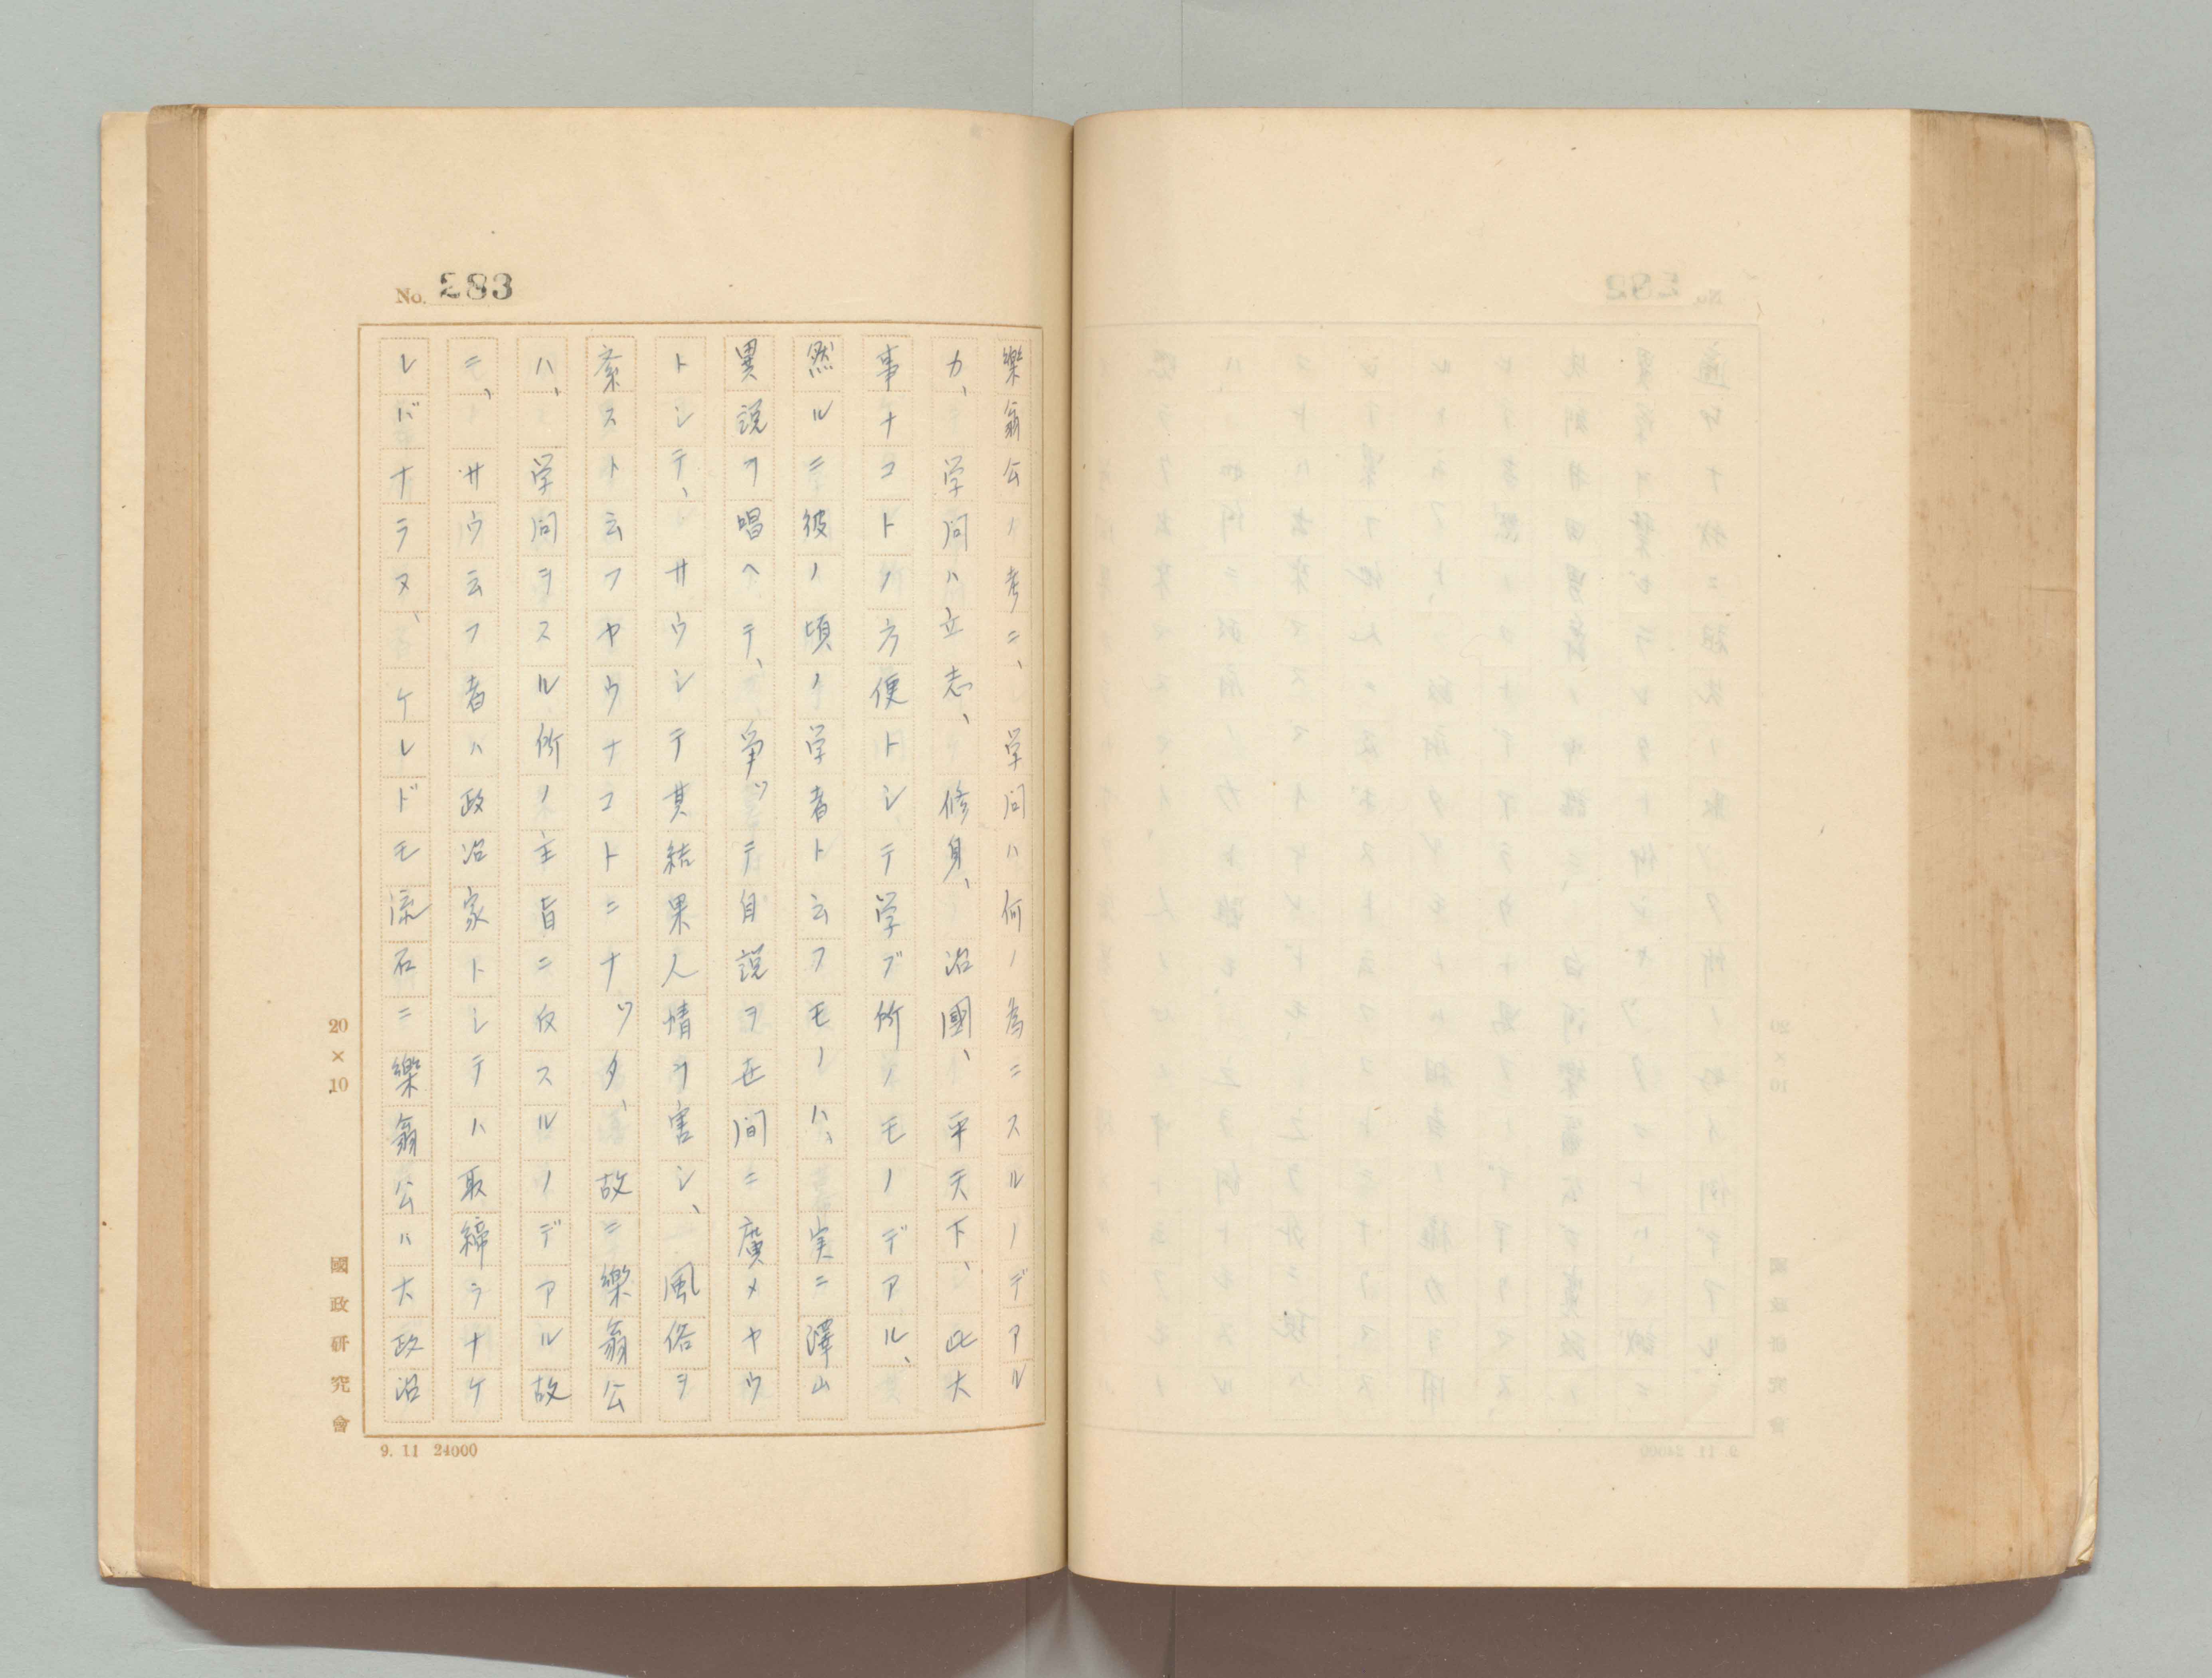 No. 283
樂翁公ノ考ニ、学問ハ何ノ為ニスルノデアル
カ、学問ハ立志、修身、治國、平天下、此大
事ナコトノ方便トシテ学ブ所ノモノデアル、
然ルニ彼ノ頃ノ学者ト云フモノハ、実ニ澤山
異説ヲ唱ヘテ、争ッテ自説ヲ世間ニ廣メヤウ
トシテ、サウシテ其結果人情ヲ害シ、風俗ヲ
紊スト云フヤウナコトニナッタ、故ニ樂翁公
ハ、学問ヲスル所ノ主旨ニ反スルノデアル故
ニ、サウ云フ者ハ政治家トシテハ取締ラナケ
レバナラヌ、ケレドモ流石ニ樂翁公ハ大政治
20×10
國政研究會
9. 11 24000